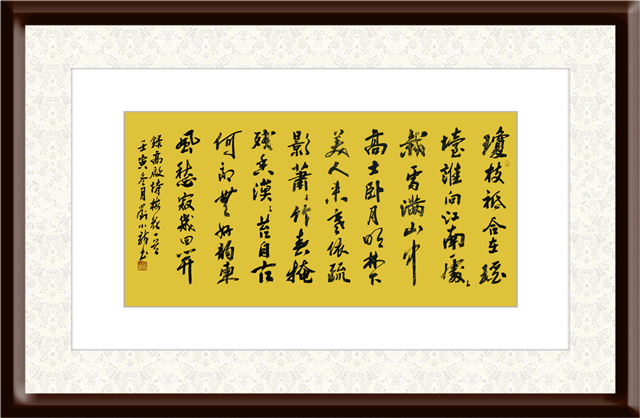 瓊枝祗合在瑶
臺誰向江南處〻
栽雪滿山中
高士卧月明林下
美人来寒依疏
影蕭〻竹春掩
残香漠〻苔自古
何郎無好韵東
風愁寂幾回開
錄高啟詩梅花
壬寅冬月劉小书